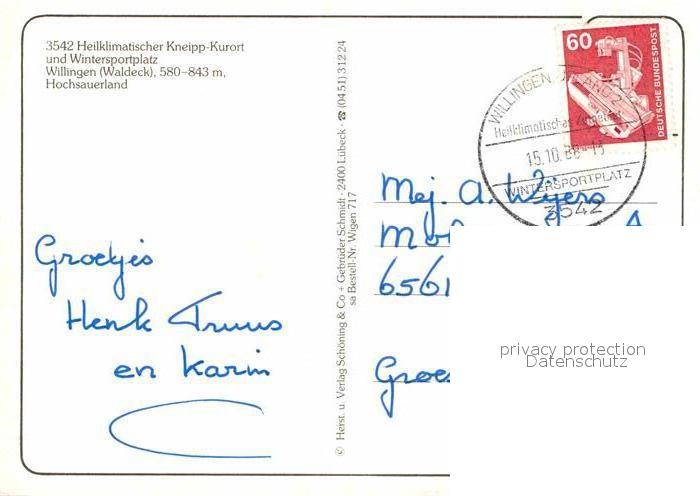 3542 Heilklimatischer Kneipp-Kurort
und Wintersportplatz
Willingen (Waldeck), 580–843 m,
Hochsauerland
Groetjes
Henk Truus
en Karin
© Herst. u. Verlag Schöning & Co + Gebrüder Schmidt · 2400 Lübeck · ☎ (04 51) 3 12 24
sa Bestell-Nr. Wigen 717
60
DEUTSCHE BUNDESPOST
WILLINGEN
Heilklimatischer
15.10.
WINTERSPORTPLATZ
3542
Mej. A. Wijers
6561
privacy protection
Datenschutz